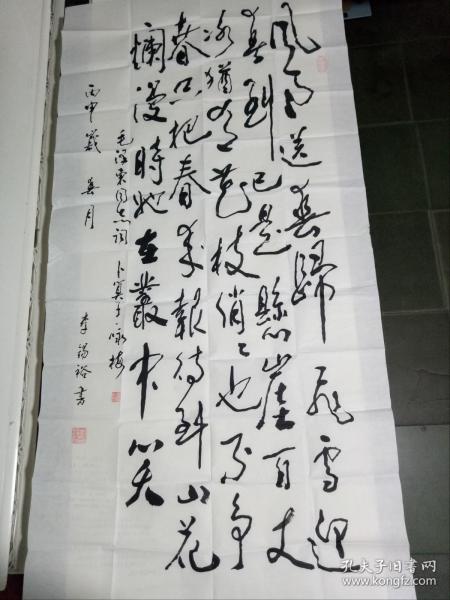 風雨送春歸飛雪迎
春到已是懸崖百丈
冰猶有花枝俏俏也不爭
春只把春來報待到山花
爛漫時她在叢中笑
毛澤東同志詞 卜算子咏梅
丙申歲 春月
李錫裕書
孔夫子旧书网
www.kongfz.com